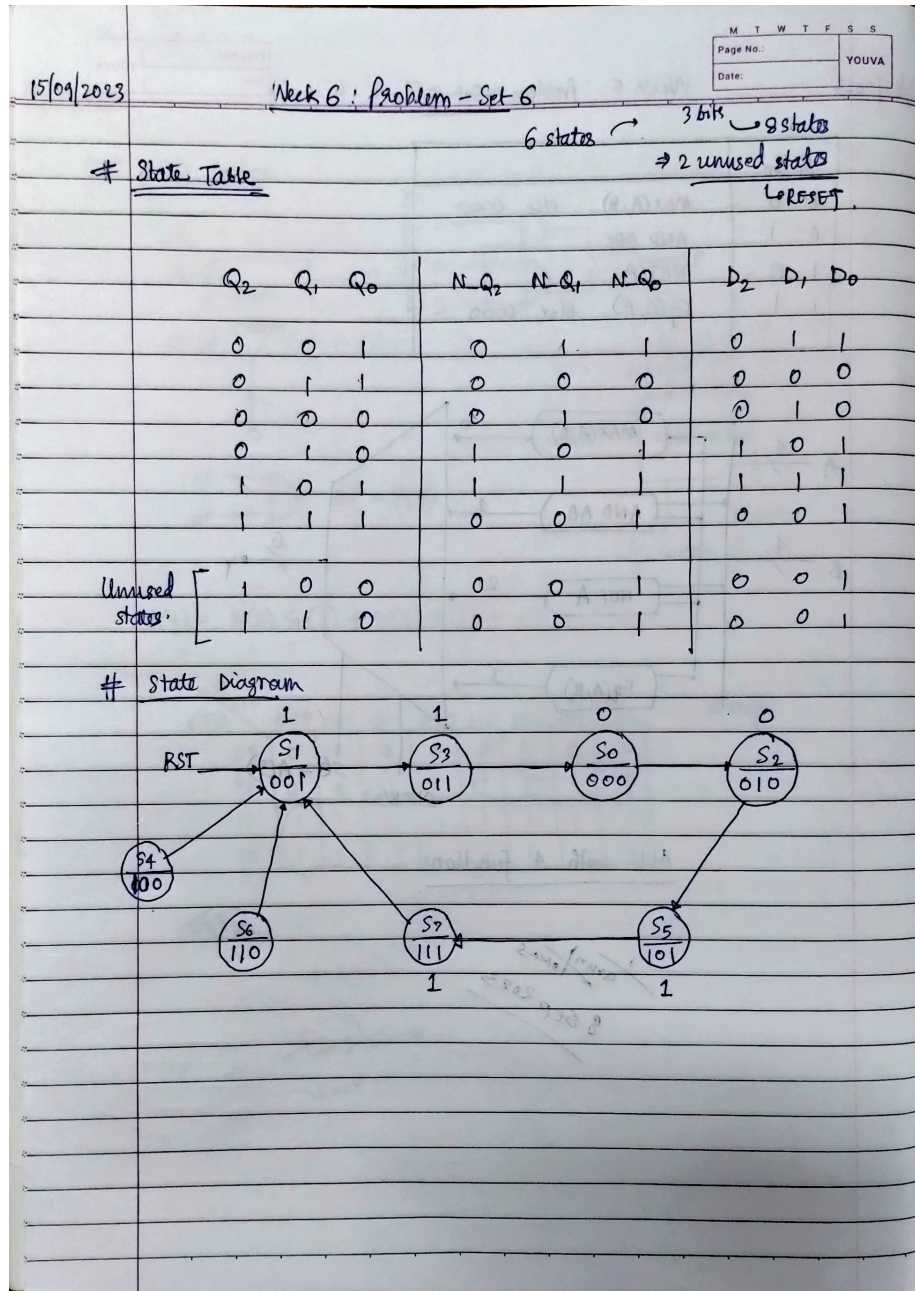 M T W T F S S
Page No.:
YOUVA
Date:
15/09/2023
Week 6 : Problem - Set 6
6 states 3 bits 8 states
⇒ 2 unused states
↳ RESET.
# State Table
Q2 Q1 Q0 N_Q2 N_Q1 N_Q0 D2 D1 D0
0 0 1 0 1 1 0 1 1
0 1 1 0 0 0 0 0 0
0 0 0 0 1 0 0 1 0
0 1 0 1 0 1 1 0 1
1 0 1 1 1 1 1 1 1
1 1 1 0 0 1 0 0 1
Unused states. 1 0 0 0 0 1 0 0 1
1 1 0 0 0 1 0 0 1
# State Diagram
1 1 0 0
RST S1 S3 S0 S2
001 011 000 010
S4
100
S6 S7 S5
110 111 101
1 1